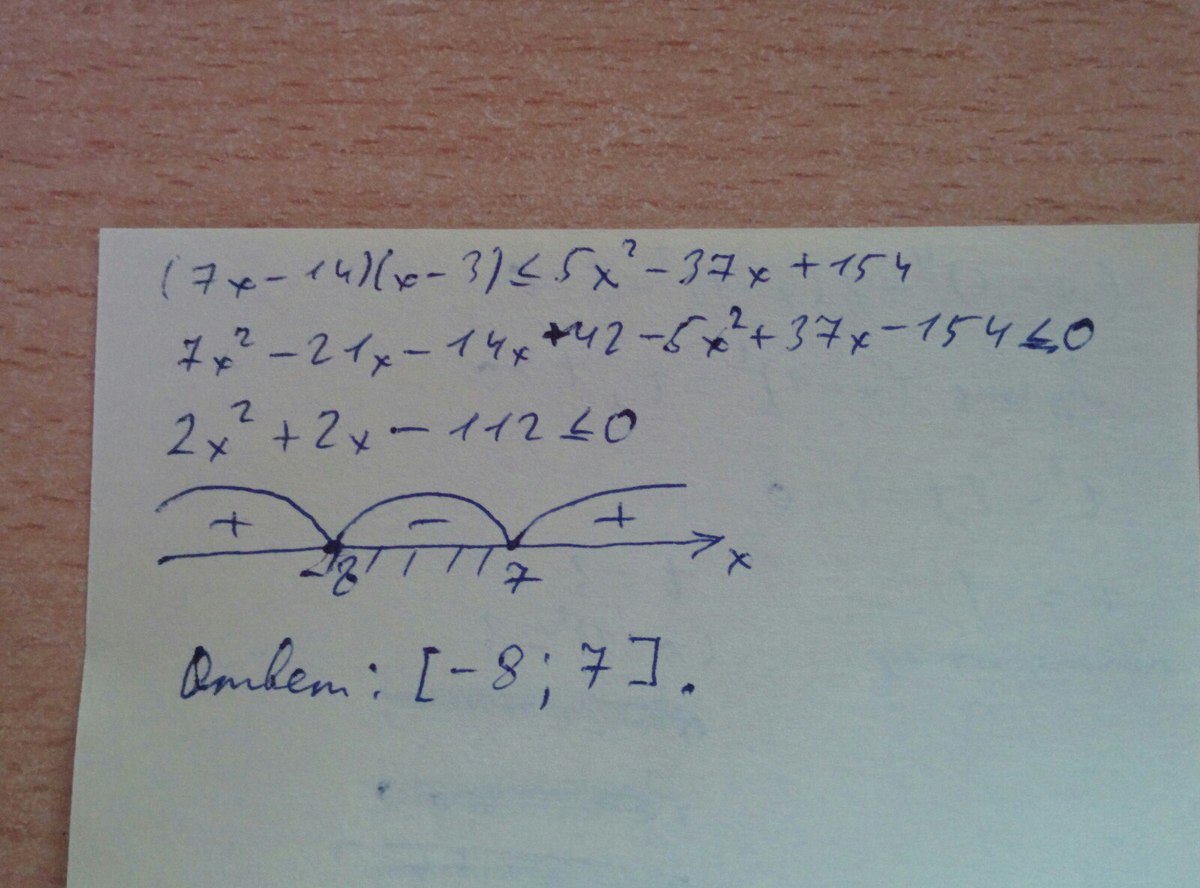 (7x-14)(x-3)≤5x²-37x+154
7x²-21x-14x+42-5x²+37x-154≤0
2x²+2x-112≤0
+ - +
-8 7 x
Ответ: [-8; 7].